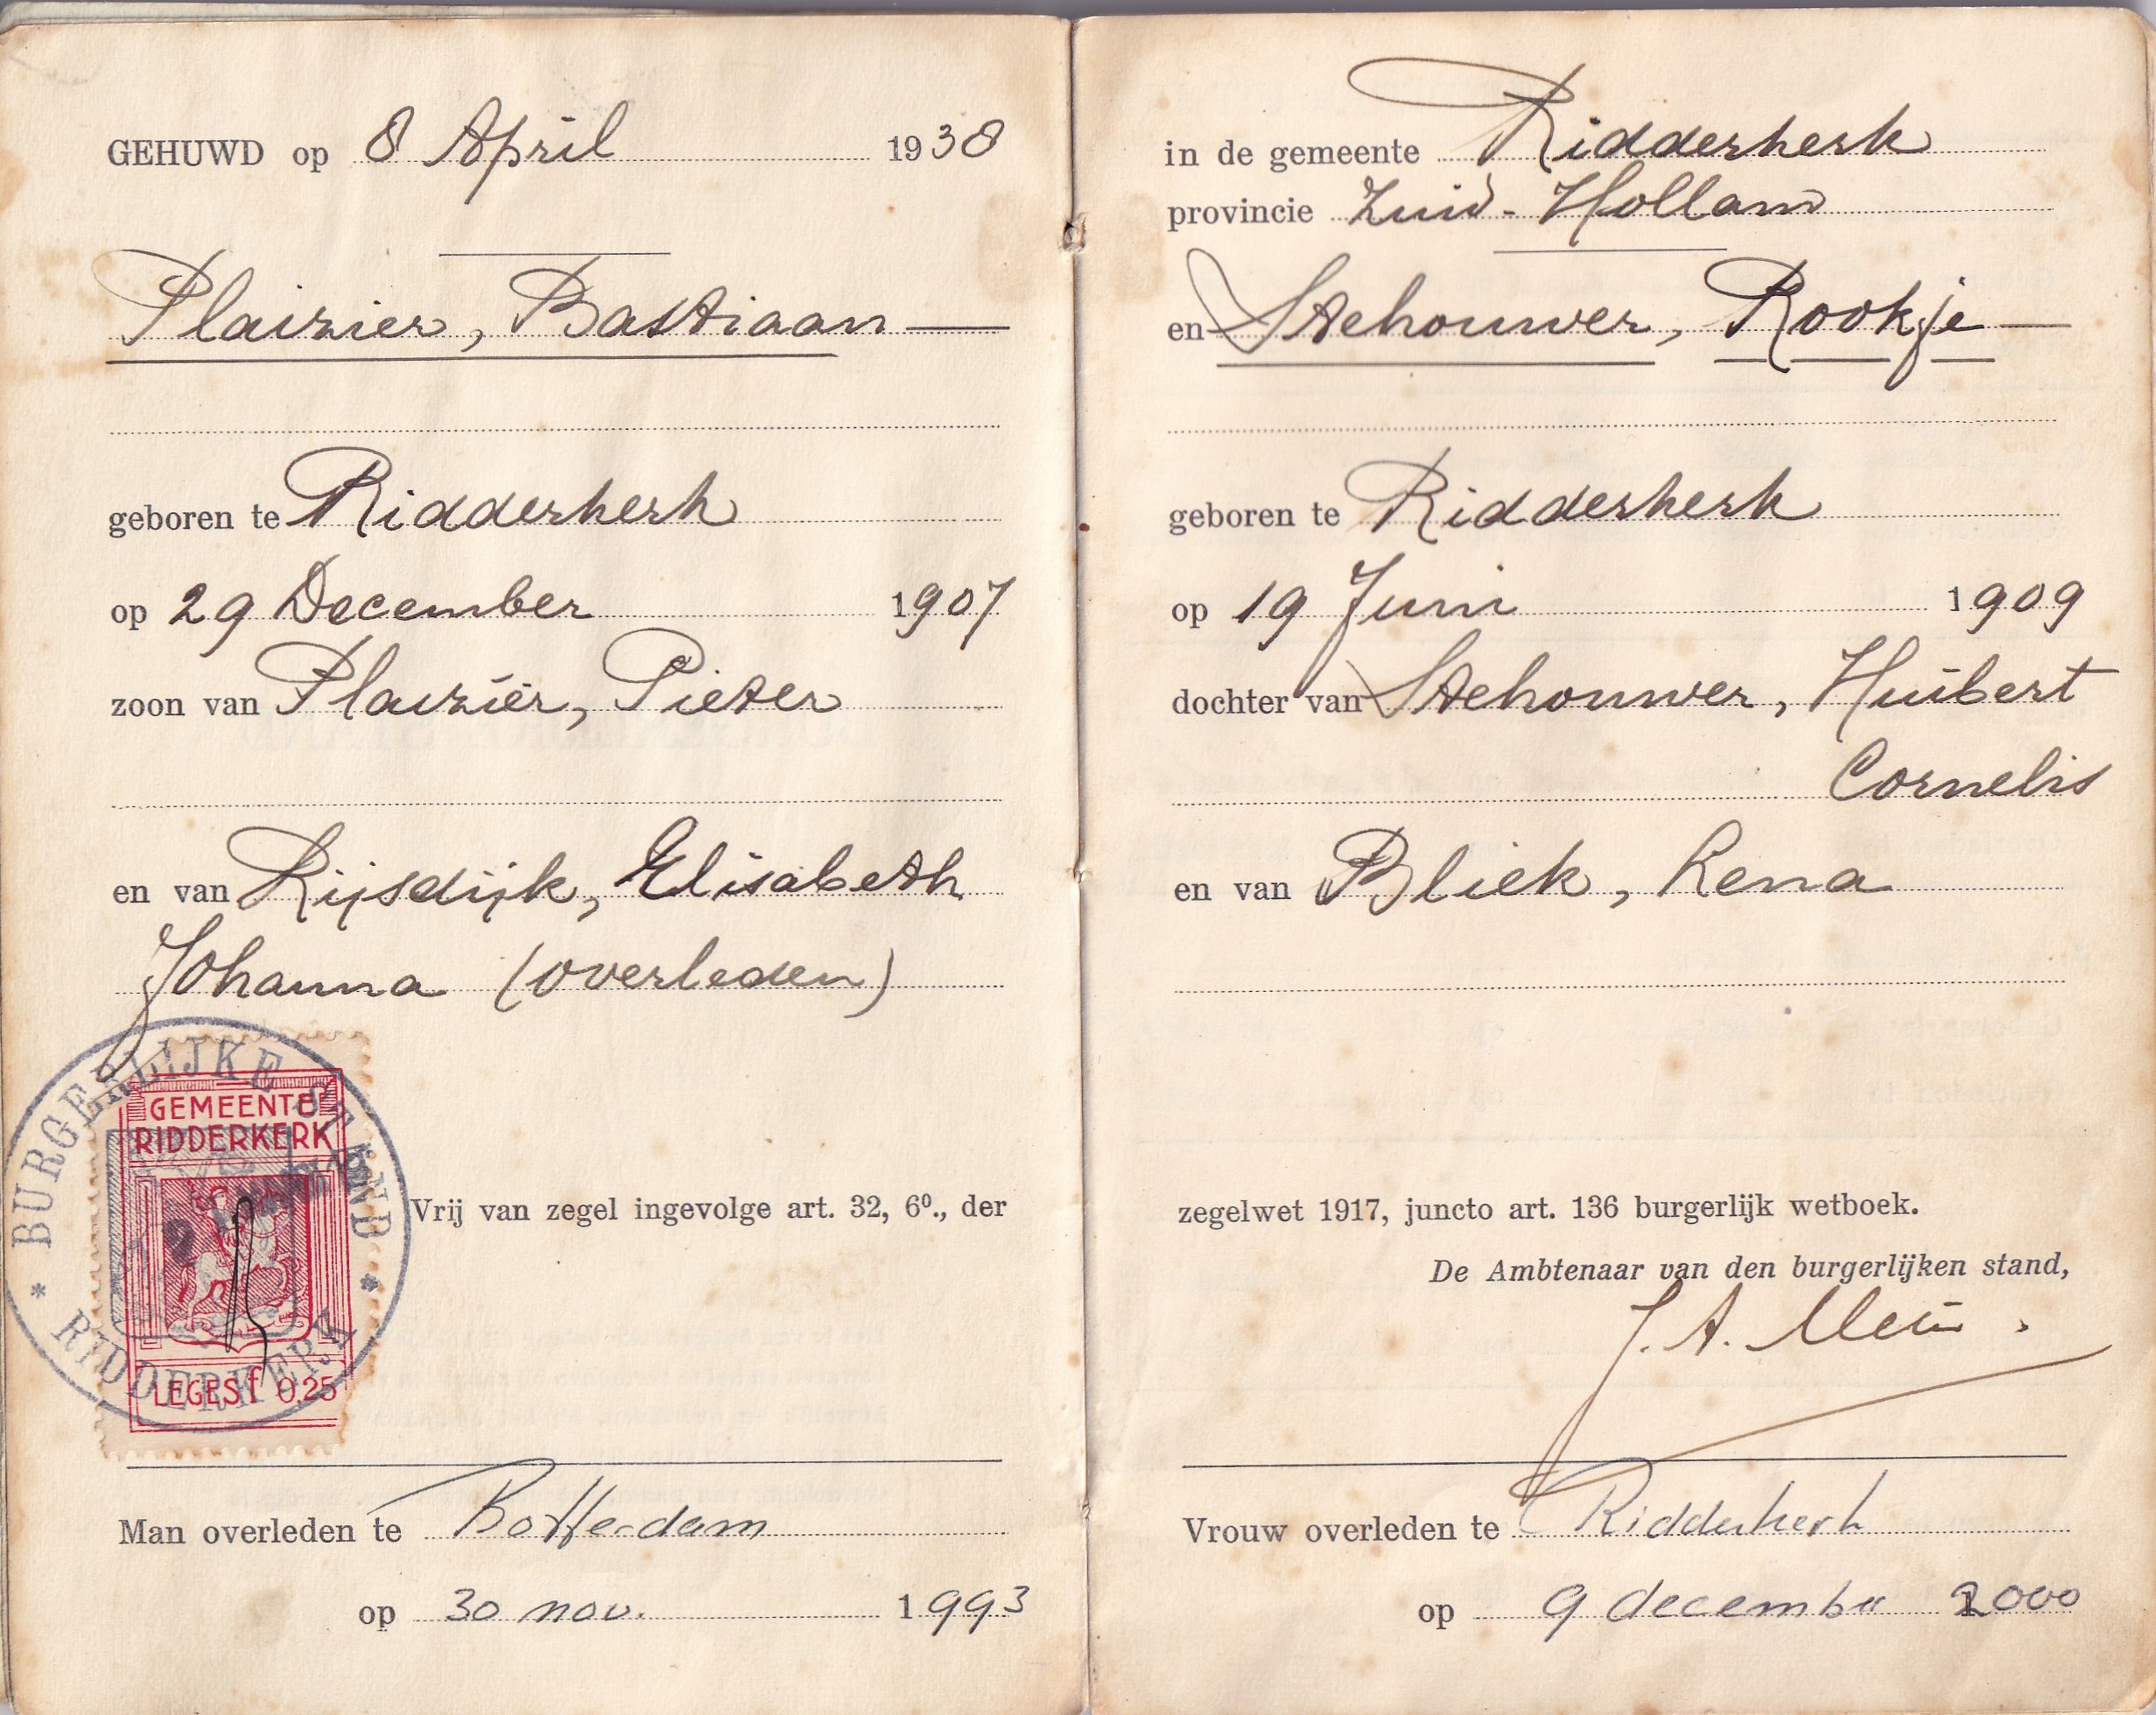 GEHUWD op 8 April 1938
Plaizier, Bastiaan
geboren te Ridderkerk
op 29 December 1907
zoon van Plaizier, Pieter
en van Rijsdijk, Elisabeth
Johanna (overleden)
BURGERLIJKE STAND
* RIDDERKERK *
GEMEENTE
RIDDERKERK
LEGES f 0.25
Vrij van zegel ingevolge art. 32, 6º., der
Man overleden te Rotterdam
op 30 nov. 1993
in de gemeente Ridderkerk
provincie Zuid-Holland
en Stehouwer, Rookje
geboren te Ridderkerk
op 19 Juni 1909
dochter van Stehouwer, Huibert
Cornelis
en van Bliek, Lena
zegelwet 1917, juncto art. 136 burgerlijk wetboek.
De Ambtenaar van den burgerlijken stand,
J. A.
Vrouw overleden te Ridderkerk
op 9 december 2000